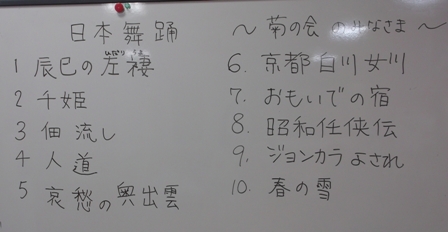 日本舞踊 ～菊の会のみなさま～
1 辰巳の左褄
2 千姫
3 佃流し
4 人道
5 哀愁の奥出雲
6. 京都白川女川
7. おもいでの宿
8. 昭和任侠伝
9. ジョンカラよされ
10. 春の雪